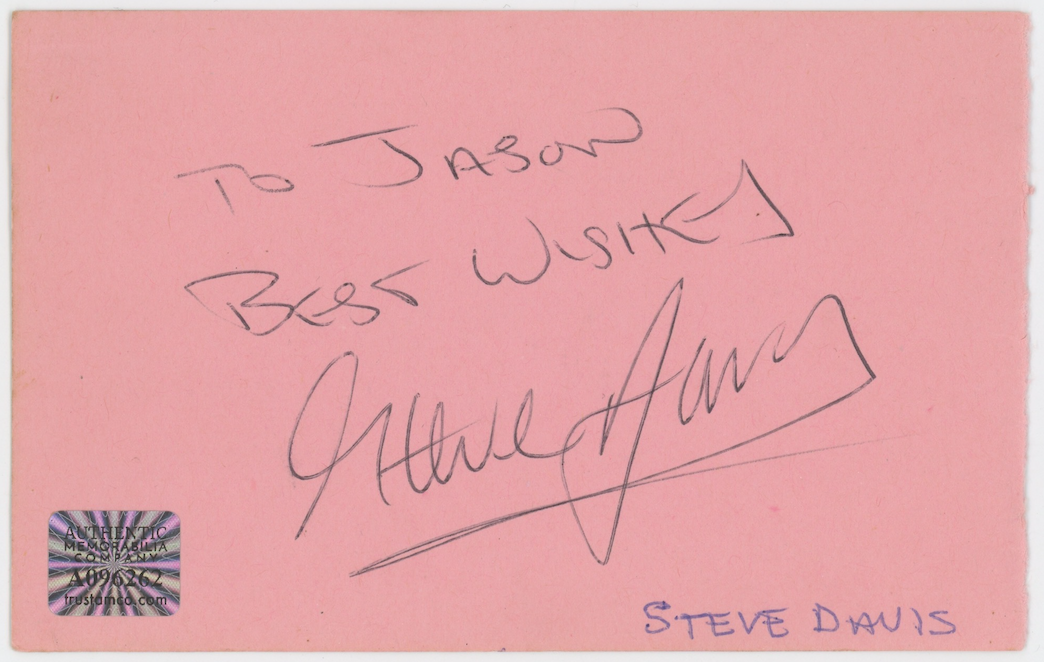 TO JASON
BEST WISHES
Steve Davis
AUTHENTIC
MEMORABILIA
COMPANY
A096262
trustamco.com
STEVE DAVIS